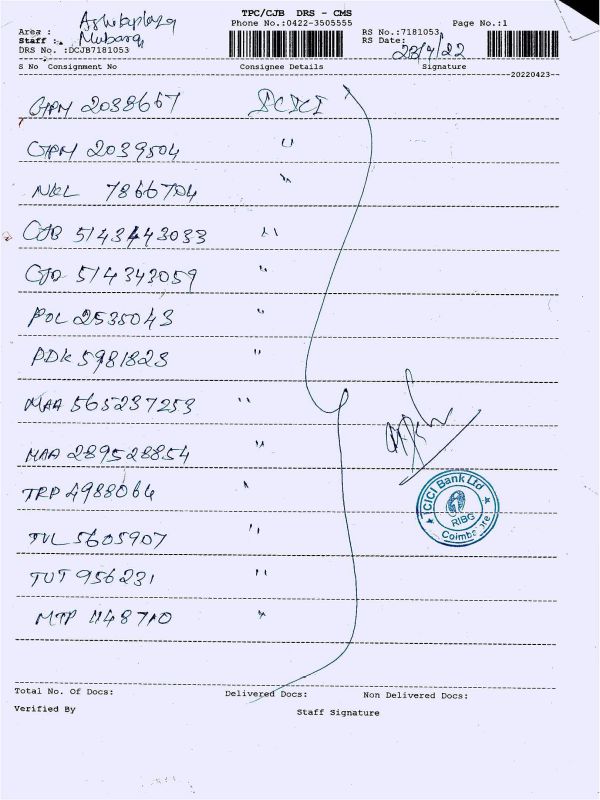 TPC/CJB DRS - CMS
Area : Phone No.:0422-3505555 Page No.:1
Staff : Mubaraq RS No.:7181053
DRS No. :DCJB7181053 RS Date: 23/4/22
S No Consignment No Consignee Details Signature
20220423
2038667 ICICI
2039504 "
NKL 7866704 "
CJB 5143443033 "
CJB 514343059 "
POL 2535043 "
PDK 5981823 "
MAA 565237253 "
MAA 289528854 "
TRP 4988064 "
TVL 5605907 "
TUT 956231 "
MTP "
ICICI Bank Ltd
RIBG
Total No. Of Docs: Delivered Docs: Non Delivered Docs:
Verified By Staff Signature